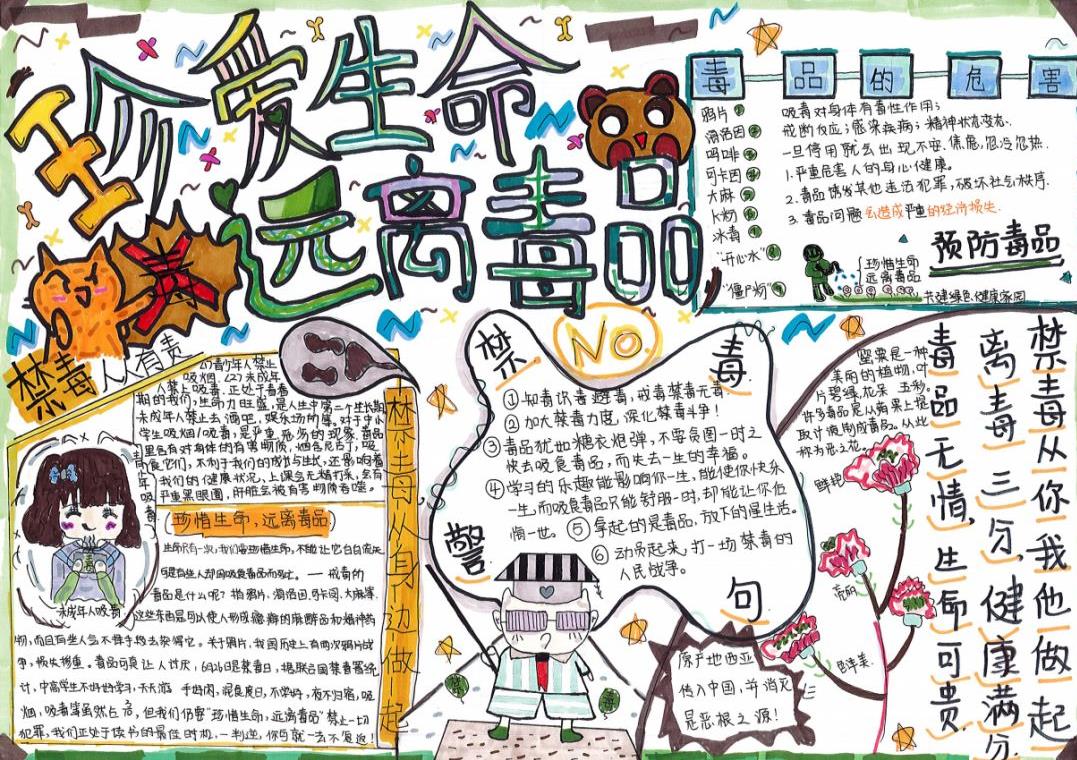 珍爱生命
远离毒品
毒品的危害
鸦片①
海洛因②
吗啡③
可卡因④
大麻⑤
K粉⑥
冰毒⑦
"开心水"⑧
"僵尸粉"⑨
吸毒对身体有毒性作用；
戒断反应；感染疾病；精神状态变态.
一旦停用就会出现不安、焦虑、忽冷忽热.
1.严重危害人的身心健康.
2.毒品诱发其他违法犯罪,破坏社会秩序.
3.毒品问题会造成严重的经济损失.
预防毒品
珍惜生命
远离毒品
共建绿色、健康家园
毒
禁毒人人有责
青少年人禁止
吸烟.
人禁止吸毒,正处于青春
期的我们,生命力旺盛,是人生中第一个生长期
未成年人禁止去酒吧,娱乐场所
学生吸烟/吸毒,是严重危害的现象.毒品
里含有对身体的有害物质,
我们的健康状况,上课会无精打采,会有
严重黑眼圈,肝脏会被有害物质吞噬.
未成年人吸毒
珍惜生命,远离毒品
生命只有一次,我们要珍惜生命,不能让它白白流失
可是有些人却因吸食毒品而死亡.——戒毒的
毒品是什么呢?指鸦片、海洛因、可卡因、大麻等,
这些东西是可以使人形成瘾癖的麻醉品和精神药
物,而且有些人会不择手段去获得它。关于鸦片,我国历史上有两次鸦片战
争,损失惨重。毒品可真让人讨厌,6月26日是禁毒日,据联合国禁毒署统
计,中高学生不好好学习,不天游手好闲,混食度日,不学好,夜不归宿,吸
烟,吸毒等虽然在 ,但我们仍要"珍惜生命,远离毒品"禁止一切
犯罪,我们正处于读书的最佳时机,一判逆,你可就一去不复返!
禁毒从身边做起
NO.
禁毒警句
①知毒识毒避毒,戒毒禁毒无毒.
②加大禁毒力度,深化禁毒斗争!
③毒品犹如糖衣炮弹,不要贪图一时之
快去吸食毒品,而失去一生的幸福。
④学习的乐趣能影响你一生,能使你快乐
一生,而吸食毒品只能舒服一时,却能让你后
悔一世。⑤拿起的是毒品,放下的是生活。
⑥动员起来,打一场禁毒的
人民战争。
原产地西亚
传入中国,并消灭
是恶根之源!
罂粟是一种
美丽的植物,叶
片碧绿,花朵五彩。
许多毒品是从罂果上提
取汁液制成毒品。从此
称为恶之花。
鲜艳
亮丽
色泽美.
禁毒从你我他做起
离毒三分,健康满分
毒品无情,生命可贵